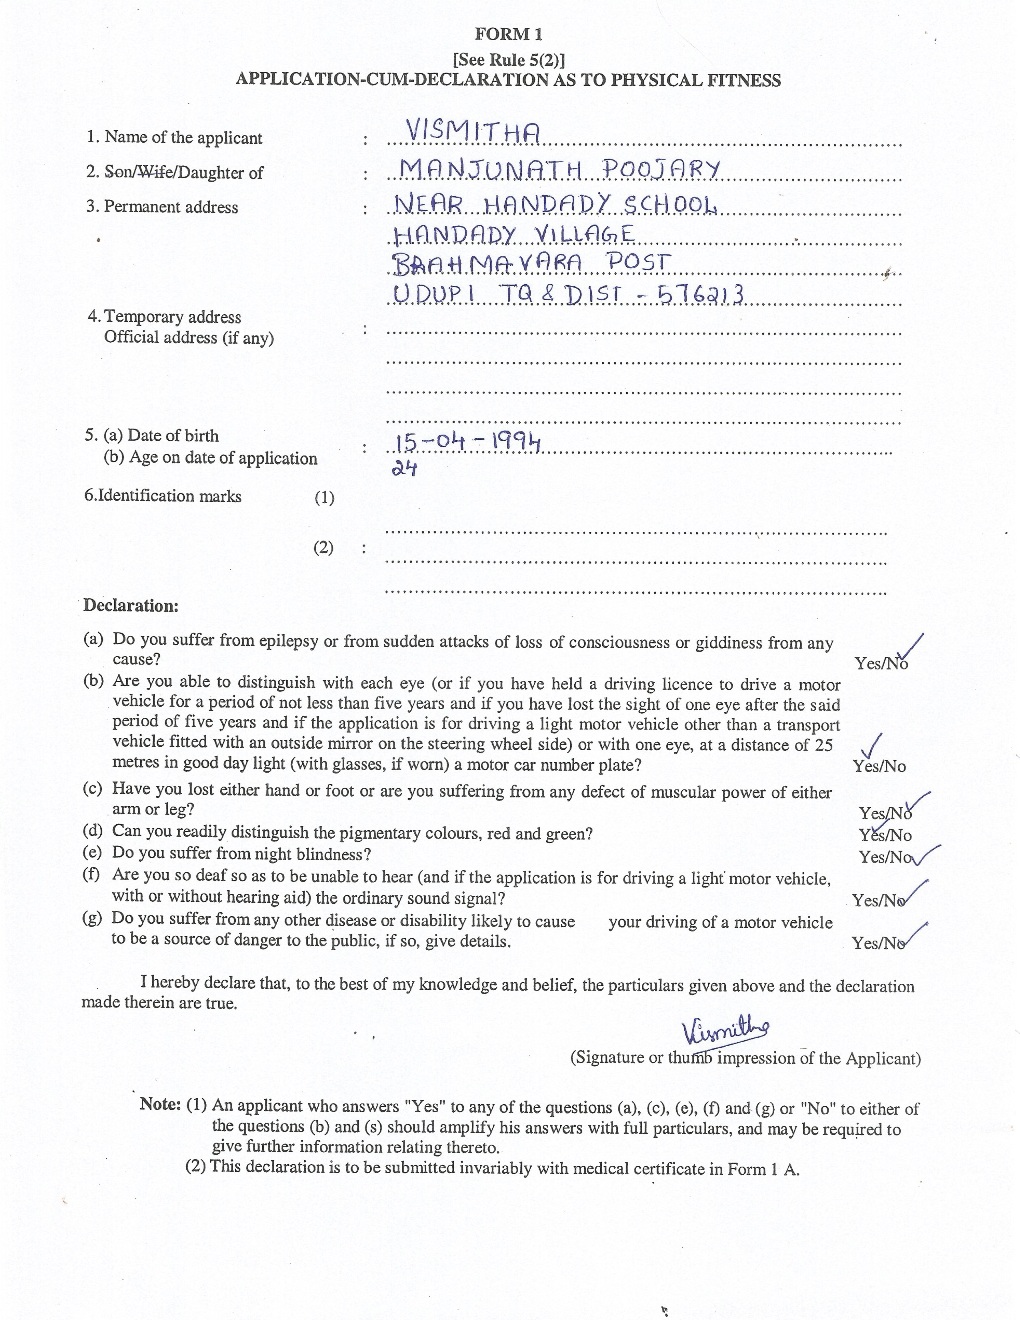 FORM 1
[See Rule 5(2)]
APPLICATION-CUM-DECLARATION AS TO PHYSICAL FITNESS
1. Name of the applicant : VISMITHA
2. Son/Wife/Daughter of : MANJUNATH POOJARY
3. Permanent address : NEAR HANDADY SCHOOL
HANDADY VILLAGE
BRAHMAVARA POST
UDUPI TQ & DIST - 576213
4. Temporary address :
Official address (if any)
5. (a) Date of birth : 15-04-1994
(b) Age on date of application 24
6.Identification marks (1)
(2) :
Declaration:
(a) Do you suffer from epilepsy or from sudden attacks of loss of consciousness or giddiness from any
cause? Yes/No
(b) Are you able to distinguish with each eye (or if you have held a driving licence to drive a motor
vehicle for a period of not less than five years and if you have lost the sight of one eye after the said
period of five years and if the application is for driving a light motor vehicle other than a transport
vehicle fitted with an outside mirror on the steering wheel side) or with one eye, at a distance of 25
metres in good day light (with glasses, if worn) a motor car number plate? Yes/No
(c) Have you lost either hand or foot or are you suffering from any defect of muscular power of either
arm or leg? Yes/No
(d) Can you readily distinguish the pigmentary colours, red and green? Yes/No
(e) Do you suffer from night blindness? Yes/No
(f) Are you so deaf so as to be unable to hear (and if the application is for driving a light motor vehicle,
with or without hearing aid) the ordinary sound signal? Yes/No
(g) Do you suffer from any other disease or disability likely to cause your driving of a motor vehicle
to be a source of danger to the public, if so, give details. Yes/No
I hereby declare that, to the best of my knowledge and belief, the particulars given above and the declaration
made therein are true.
Vismitha
(Signature or thumb impression of the Applicant)
Note: (1) An applicant who answers "Yes" to any of the questions (a), (c), (e), (f) and (g) or "No" to either of
the questions (b) and (s) should amplify his answers with full particulars, and may be required to
give further information relating thereto.
(2) This declaration is to be submitted invariably with medical certificate in Form 1 A.